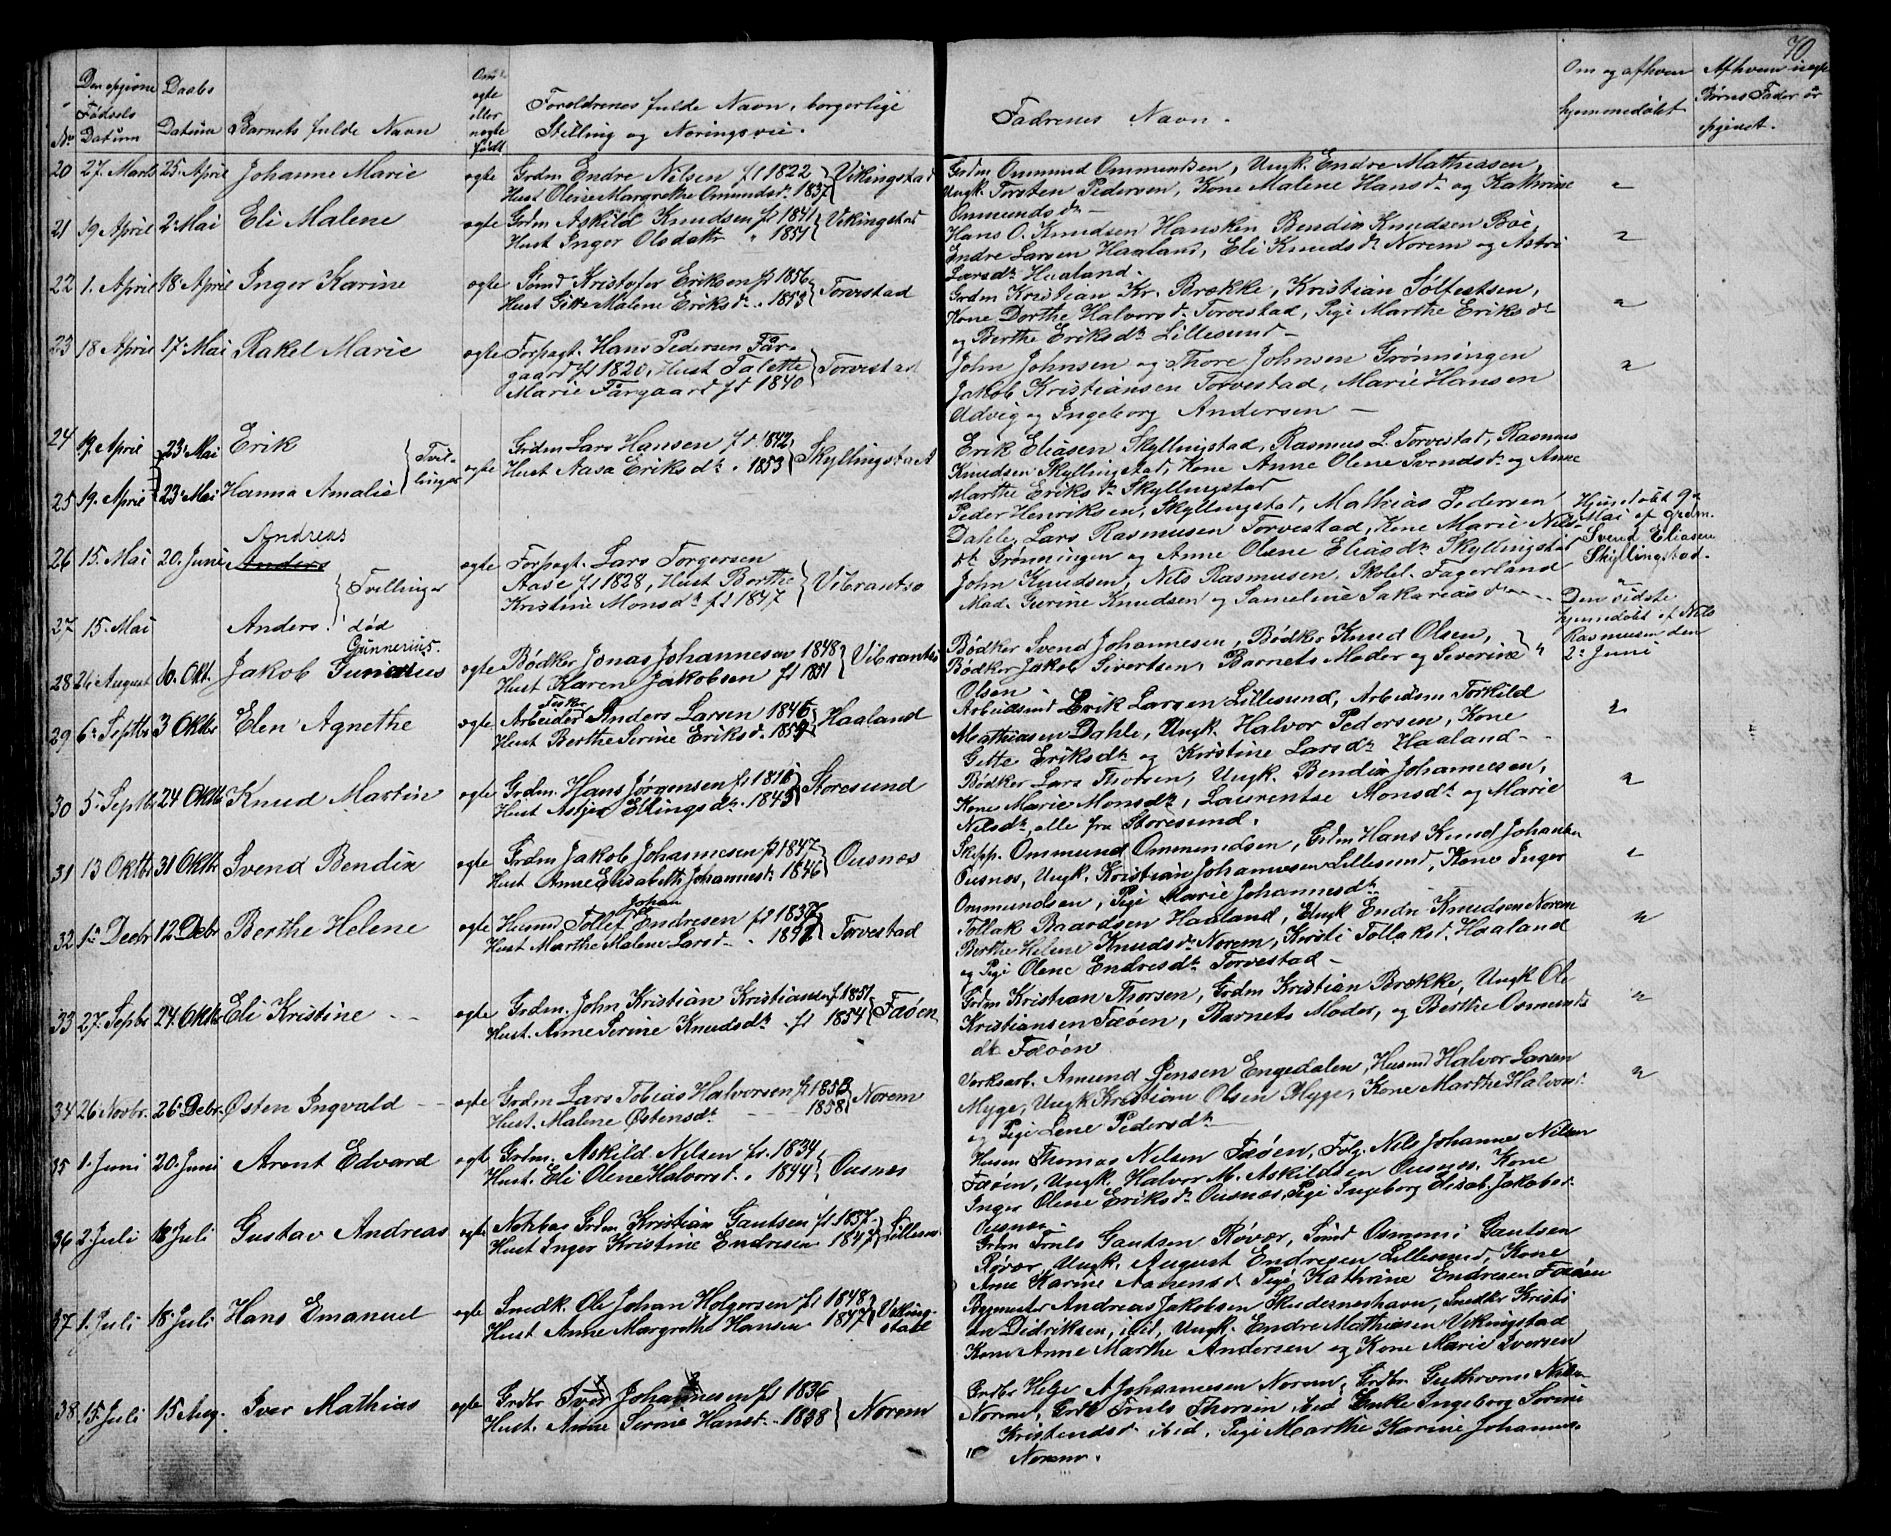 70
No | Den opgivne Fødsels Datum | Daabs Datum | Barnets fulde Navn | Om ægte eller uægte født | Foreldrenes fulde Navn, borgerlige Stilling og Næringsvei. | Fadrenes Navn. | Om og af hvem hjemmedøbt | Af hvem uægte Børns Fader er opgivet.
20 27. Marts 25. April Johanne Marie ægte Grdm Endre Nilsen ft 1822 } Vikingstad
Hust Oline Margrethe Omunds d. 1837
Grdm Ommund Ommundsen, Ungk. Endre Mathiassen,
Ungk. Torsten Pedersen, Kone Malene Hans dr. og Kathrine
Ommunds dr. —
21 19 April 2. Mai Eli Malene ægte Grdm Askild Knudsen ft 1841 } Vikingstad
Hust Inger Olsdattr " 1851
Hans O. Knudsen Hansken Bendix Knudsen Bøe,
Endre Larsen Haaland, Eli Knuds dr Norem og Astri
Lars dr. Haaland.
22 1. April 18 April Inger Karine ægte Smd Kristofer Eriksen ft 1856 } Torvestad
Hust Gitte Malene Eriks dr. . 1853
Grdm Kristian Kr. Brække, Kristian Solfestsen,
Kone Dorthe Halvors dr Torvestad, Pige Marthe Eriks dr
og Berthe Eriks dr Lillesund —
23 18 April 17. Mai Rakel Marie ægte Forpagt. Hans Pedersen Far-
gaard ft 1820, Hust Talette } Torvestad
Marie Fargaard ft 1840
John Johnsen og Thore Johnsen Grønningen
Jakob Kristiansen Torvestad, Marie Hansen
Udvig og Ingeborg Andersen —
24 19. April 23. Mai Erik } Tvil-
linger
ægte Grdm Lars Hansen ft 1842 } Skyllingstad
Hust Aasa Eriks dr . 1853
Erik Eliasen Skyllingstad, Rasmus L. Torvestad, Rasmus
Knudsen Skyllingstad, Kone Anne Olene Svends dr og Anne
Marthe Eriks dr Skyllingstad
25 19. April 23. Mai Hanna Amalie
Peder Henriksen, Skyllingstad, Mathias Pedersen
Dahle, Lars Rasmussen Torvestad, Kone Marie Nils-
dr. Grønningen og Anne Olene Elias dr Skyllingstad
Hjemedøbt 9de
Mai af Grdm.
Svend Eliasen
Skyllingstad.
26 15. Mai 20. Juni Andreas Anders } Tvillinger
ægte Forpagt. Lars Torgersen
Aase ft 1828, Hust Berthe } Vibrantsø
Kristine Mons dr ft 1847
John Knudsen, Nils Rasmusen, Skolel. Fagerland
Mad. Gurine Knudsen og Sameline Sakarias dr —
27 15. Mai Anders. død
Den sidste
hjemedøbt af Nils
Rasmusen den
2. Juni
28 26 August 10. Okt. Jakob Gunnerius. ægte Bødker Jonas Johannesen 1848 } Vibrantsø
Hust Karen Jakobsen ft 1851
Bødker Svend Johannesen, Bødker Knud Olsen,
Bødker Jakob Sivertsen, Barnets Moder og Severine
Olsen
29 6. Septbr 3 Oktbr Elen Agnethe ægte Fisker Arbeider Anders Larsen 1846 } Haaland
Hust Berthe Serine Eriks d. 1854
Arbeidsmd Erik Larsen Lillesund, Arbeidsm Torkild
Mathiasen Dahle, Ungk. Halvor Pedersen, Kone
Gitte Eriks dr og Kirstine Lars dr Haaland —
30 5. Septbr 24 Oktbr Knud Martin ægte Grdm. Hans Jørgensen ft 1816 } Storesund
Hust Astjea Ellings dr. 1843
Bødker Lars Thorsen, Ungk. Bendix Johannesen,
Kone Marie Mons dr, Laurentse Mons dr og Marie
Nils dr, alle fra Storesund.
31 13 Oktbr 31 Oktbr Svend Bendix ægte Grdm Jakob Johannesen ft 1847 } Ousnes
Hust Anne Elisabeth Johannes dr 1846
Skipp. Ommund Ommundsen, Grdm Hans Knud Johansen
Ousnes, Ungk. Kristian Johannesen Lillesund, Kone Inger
Ommundsen, Pige Marie Johannes dr
32 1ste Decbr 12 Debr Berthe Helene ægte Husmd Tollef Johan Endresen ft 1837 } Torvestad
Hust Marthe Malene Lars d — . 1842
Tollak Baardsen Haaland, Ungk Endre Knudsen Norem
Berthe Helene Knuds dr Norem, Kirsti Tollaks d. Haaland
og Pige Olene Endres dr Torvestad —
33 27. Sepbr 24 Oktbr Eli Kristine ægte Grdm. John Kristian Kristiansen ft 1851 } Fæøen
Hust. Anne Serine Knuds dr . ft 1854
Grdm Kristian Thorsen, Grdm Kristian Brække, Ungk Ole
Kristiansen Fæøen, Barnets Moder, og Berthe Osmunds
dr Fæøen
34 26. Novbr. 26. Debr. Østen Ingvald — ægte Grdm Lars Tobias Halvorsen ft 1853 } Norem
Hust. Malene Østens dr — 1858
Værksarb. Amund Jensen Engedalen, Husmd Halvor Larsen
Myge, Ungk Kristian Olsen Myge, Kone Marthe Halvors
og Pige Lene Peders dr
35 1. Juni 20. Juni Arent Edvard ægt Grdm. Askild Nelsen ft. 1834 } Ousnes
Hust. Eli Olene Halvors d. . 1844
Husm Thomas Nelsen Fæøen, Folg. Nils Johannes Nilsen
Fæøen, Ungk. Halvor M. Askildsen Ousnes, Kone
Inger Olene Eriks dr Ousnes, Pige Ingeborg Elisab. Jakobs dr
Ousnes —
36 2. Juli 18 Juli Gustav Andreas ægte Notebas Grdm Kristian Gautsen ft. 1837 } Lillesu
Hust Inger Kristine Endresen 1847
Grdm Truls Gautsen Røvær, Smd Osmund Gautsen
Røvær, Ungk. August Endresen Lillesund, Kone
Ane Karine Aanens d. Pige Kathrine Endresen Fæøen
37 1. Juli 18 Juli Hans Emanuel ægte Smedk. Ole Johan Holgersen ft 1848 } Viking-
stad
Hust Anne Margrethe Hansen 1847
Bygmester Andreas Jakobsen Skudeneshavn, Snedker Kristi
an Didriksen, ibid, Ungk. Endre Mathiesen Vikingstad
Kone Anne Marthe Andersen og Kone Marie Iversen
38 15. Juli 15 Aug. Iver Mathias ægte Grdbr Iver Johannesen ft 1836 } Norem
Hust. Anne Serine Hans d. . 1838
Grdbr Helge A Johannesen Norem, Grdbr Guthrum Nilsen
Norem, Grdb Truls Thorsen ibid Enke Ingeborg Serine
Kristens d. ibid, Pige Marthe Karine Johannes.
Norem.